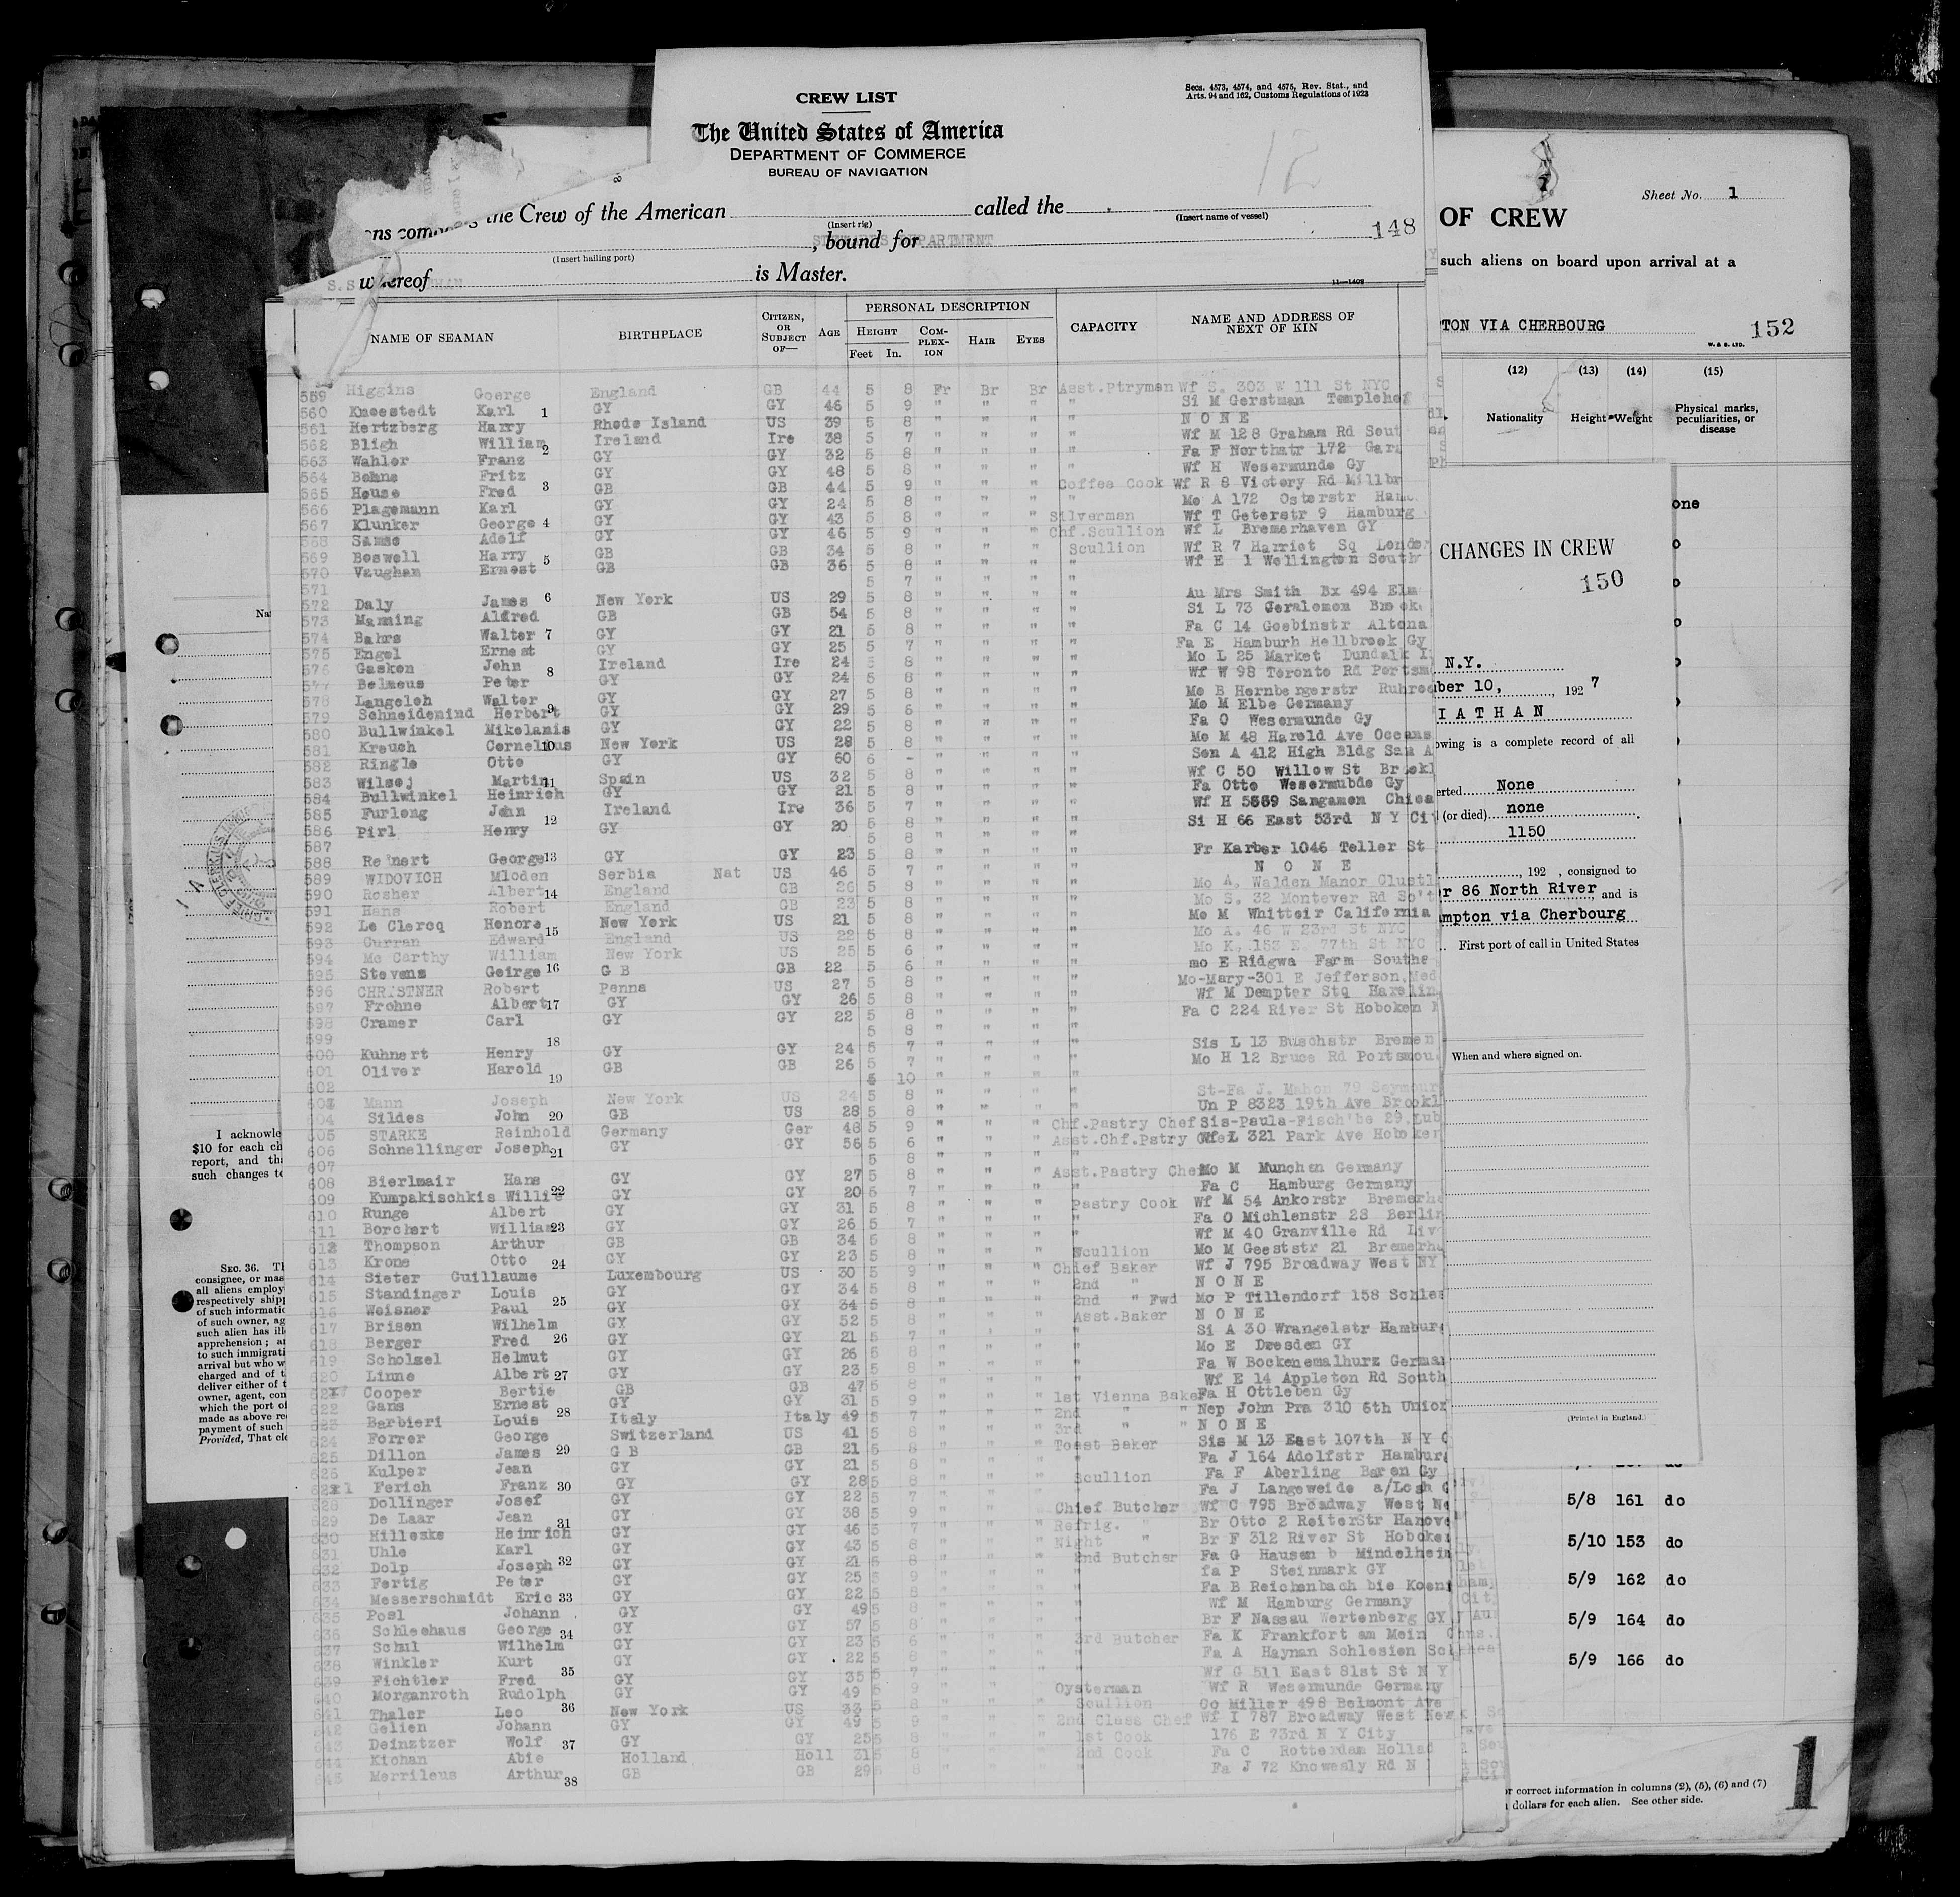 CREW LIST
Secs. 4573, 4574, and 4575, Rev. Stat., and
Arts. 94 and 162, Customs Regulations of 1923
The United States of America
DEPARTMENT OF COMMERCE
BUREAU OF NAVIGATION
12
the Crew of the American called the
(Insert rig) (Insert name of vessel)
, bound for 148
STEWARDS DEPARTMENT
(Insert hailing port)
S.S. whereof is Master.
11—1408
NAME OF SEAMAN BIRTHPLACE CITIZEN, OR SUBJECT OF— AGE PERSONAL DESCRIPTION CAPACITY NAME AND ADDRESS OF NEXT OF KIN
HEIGHT COM-PLEX-ION HAIR EYES
Feet In.
559 Higgins Goerge England GB 44 5 8 Fr Br Br Asst.Ptryman Wf S. 303 W 111 St NYC
560 Kneestedt Karl 1 GY GY 46 5 9 " " " " Si M Gerstman Templehof
561 Hertzberg Harry Rhode Island US 39 5 8 " " " " N O N E
562 Bligh William 2 Ireland Ire 38 5 7 " " " " Wf M 128 Graham Rd Sout
563 Wahler Franz GY GY 32 5 8 " " " " Fa F Northstr 172 Gar
564 Behns Fritz GY GY 48 5 8 " " " " Wf H Wesermunde Gy
565 House Fred 3 GB GB 44 5 9 " " " Coffee Cook Wf R 8 Victory Rd Millbr
566 Plagemann Karl GY GY 24 5 8 " " " " Mo A 172 Osterstr Ham
567 Klunker George 4 GY GY 43 5 8 " " " Silverman Wf T Geterstr 9 Hamburg
568 Samse Adolf GY GY 46 5 9 " " " Chf.Scullion Wf L Bremerhaven GY
569 Boswell Harry 5 GB GB 34 5 8 " " " Scullion Wf R 7 Harriet Sq London
570 Vaughan Ernest GB GB 36 5 8 " " " " Wf E 1 Wellington South
571 5 7 " " " "
572 Daly James 6 New York US 29 5 8 " " " " Au Mrs Smith Bx 494 Elm
573 Manning Alfred GB GB 54 5 8 " " " " Si L 73 Geralemon Brook
574 Bahrs Walter 7 GY GY 21 5 8 " " " " Fa C 14 Goebinstr Altona
575 Engel Ernest GY GY 25 5 7 " " " " Fa E Hamburh Hellbrook Gy
576 Gasken John 8 Ireland Ire 24 5 8 " " " " Mo L 25 Market Dundalk I
577 Belmeus Peter GY GY 24 5 8 " " " " Wf W 98 Toronto Rd Portsm
578 Langeloh Walter GY GY 27 5 8 " " " " Mo B Hernbergerstr Ruhro
579 Schneidemind Herbert 9 GY GY 29 5 6 " " " " Mo M Elbe Germany
580 Bullwinkel Mikolanis GY GY 22 5 8 " " " " Fa O Wesermunde Gy
581 Krauch Cornelius 10 New York US 28 5 8 " " " " Mo M 48 Harold Ave Oceans
582 Ringle Otto GY GY 60 6 - " " " " Son A 412 High Bldg San A
583 Wilsej Martin 11 Spain US 32 5 8 " " " " Wf C 50 Willow St Brookl
584 Bullwinkel Heinrich GY GY 21 5 8 " " " " Fa Otto Wesermubde Gy
585 Furlong John 12 Ireland Ire 36 5 7 " " " " Wf H 5669 Sangamon Chica
586 Pirl Henry GY GY 20 5 8 " " " " Si H 66 East 53rd N Y Cit
587 5 8 " " " "
588 Reinert George 13 GY GY 23 5 8 " " " " Fr Karber 1046 Teller St
589 WIDOVICH Mloden Serbia Nat US 46 5 7 " " " " N O N E
590 Rosher Albert 14 England GB 26 5 8 " " " " Mo A. Walden Manor Clustl
591 Hans Robert England GB 23 5 8 " " " " Mo S. 32 Montever Rd So't
592 Le Clercq Honore 15 New York US 21 5 8 " " " " Mo M Whitteir California
593 Curran Edward England US 22 5 8 " " " " Mo A. 46 W 23rd St NYC
594 Mc Carthy William New York US 25 5 6 " " " " Mo K. 153 E. 77th St NYC
595 Stevens Geirge 16 G B GB 22 5 6 " " " " mo E Ridgwa Farm Southe
596 CHRISTNER Robert Penna US 27 5 8 " " " " Mo-Mary-301 E Jefferson,Med
597 Frohne Albert 17 GY GY 26 5 8 " " " " Wf M Dempter Stq Harelin
598 Cramer Carl GY GY 22 5 8 " " " " Fa C 224 River St Hoboken
599 18 5 8 " " " "
600 Kuhnert Henry GY GY 24 5 7 " " " " Sis L 13 Buschstr Bremen
601 Oliver Harold 19 GB GB 26 5 7 " " " " Mo H 12 Bruce Rd Portsmou
602 5 10 " " " "
603 Mann Joseph New York US 24 5 8 " " " " St-Fa J. Mahon 79 Seymour
604 Sildes John 20 GB US 28 5 8 " " " " Un P 8323 19th Ave Brookl
605 STARKE Reinhold Germany Ger 48 5 9 " " " Chf.Pastry Chef Sis-Paula-Fisch'be 29,Lub
606 Schnellinger Joseph 21 GY GY 56 5 6 " " " Asst.Chf.Pstry Chef Wf L 321 Park Ave Hoboken
607 5 8 " " "
608 Bierlmair Hans GY GY 27 5 8 " " " Asst.Pastry Chef Mo M Munchen Germany
609 Kumpakischkis Willie 22 GY GY 20 5 7 " " " " Fa C Hamburg Germany
610 Runge Albert GY GY 31 5 8 " " " Pastry Cook Wf M 54 Ankorstr Bremerha
611 Borchert William 23 GY GY 26 5 7 " " " " Fa O Michlenstr 28 Berlin
612 Thompson Arthur GB GB 34 5 8 " " " " Wf M 40 Granville Rd Liv
613 Krone Otto 24 GY GY 23 5 8 " " " Wcullion Mo M Geeststr 21 Bremerha
614 Sieter Guillaume Luxembourg US 30 5 9 " " " Chief Baker Wf J 795 Broadway West NY
615 Standinger Louis GY GY 34 5 8 " " " 2nd " N O N E
616 Weisner Paul 25 GY GY 34 5 8 " " " 2nd " Fwd Mo P Tillendorf 158 Schles
617 Brisen Wilhelm GY GY 52 5 8 " " " Asst.Baker N O N E
618 Berger Fred 26 GY GY 21 5 7 " " " " Si A 30 Wrangelstr Hamburg
619 Scholsel Helmut GY GY 26 5 8 " " " " Mo E Dresden GY
620 Linne Albert 27 GY GY 23 5 8 " " " " Fa W Bockenemalhurz German
621 Cooper Bertie GB GB 47 5 8 " " " " Wf E 14 Appleton Rd South
622 Gans Ernest GY GY 31 5 9 " " " 1st Vienna Baker Fa H Ottleben Gy
623 Barbieri Louis 28 Italy Italy 49 5 7 " " " 2nd " " Nep John Pra 310 6th Union
624 Forrer George Switzerland US 41 5 8 " " " 3rd " " N O N E
625 Dillon James 29 G B GB 21 5 8 " " " Toast Baker Sis M 13 East 107th N Y C
626 Kulper Jean GY GY 21 5 8 " " " " Fa J 164 Adolfstr Hamburg
Ferich Franz 30 GY GY 28 5 8 " " " Scullion Fa F Aberling Baren Gy
628 Dollinger Josef GY GY 22 5 7 " " " " Fa J Langeweide a/Losh G
629 De Laar Jean 31 GY GY 38 5 9 " " " Chief Butcher Wf C 795 Broadway West Ne
630 Hilleske Heinrich GY GY 46 5 7 " " " Refrig. " Br Otto 2 Reiterstr Hanove
631 Uhle Karl GY GY 43 5 8 " " " Night " Br F 312 River St Hoboken
632 Dolp Joseph 32 GY GY 21 5 8 " " " 2nd Butcher Fa G Hausen b Mindelhein
633 Fertig Peter GY GY 25 5 9 " " " " fa P Steinmark GY
634 Messerschmidt Eric 33 GY GY 22 5 8 " " " " Fa B Reichenbach bie Koeni
635 Posl Johann GY GY 49 5 8 " " " " Wf M Hamburg Germany
636 Schleehaus George 34 GY GY 57 5 8 " " " " Br F Nassau Wertenberg GY
637 Schil Wilhelm GY GY 23 5 6 " " " 3rd Butcher Fa K Frankfort am Mein
638 Winkler Kurt GY GY 22 5 8 " " " " Fa A Haynan Schlesien
639 Fichtler Fred 35 GY GY 35 5 7 " " " " Wf G 511 East 81st St N Y
640 Morganroth Rudolph GY GY 49 5 9 " " " Oysterman Wf R Wesermunde Germany
641 Thaler Leo 36 New York US 33 5 8 " " " Scullion Co Miller 498 Belmont Ave
642 Gelien Johann GY GY 49 5 9 " " " 2nd Class Chef Wf I 787 Broadway West New
643 Deinztzer Wolf 37 GY GY 25 5 8 " " " 1st Cook 176 E 73rd N Y City
644 Kichan Abie Holland Holl 31 5 8 " " " 2nd Cook Fa C Rotterdam Hollad
645 Merrileus Arthur 38 GB GB 29 5 8 " " " " Fa J 72 Knowesly Rd N
Sheet No. 1
OF CREW
such aliens on board upon arrival at a
TON VIA CHERBOURG 152
W. & S. LTD.
(12) (13) (14) (15)
Nationality Height Weight Physical marks, peculiarities, or disease
one
CHANGES IN CREW
150
N.Y.
ber 10, , 192 7
IATHAN
owing is a complete record of all
erted None
(or died) none
1150
, 192 , consigned to
r 86 North River, and is
mpton via Cherbourg
First port of call in United States
When and where signed on.
(Printed in England.)
5/8 161 do
5/10 153 do
5/9 162 do
5/9 164 do
5/9 166 do
or correct information in columns (2), (5), (6) and (7)
dollars for each alien. See other side.
1
Na
I acknowle
$10 for each
report, and
such changes to
SEC. 36.
consignee, or mas
all aliens employ
respectively ship
of such informatio
of such owner, ag
such alien has ill
apprehension; a
to such immigrati
arrival but who w
charged and of t
deliver either of t
owner, agent, con
which the port of
made as above re
payment of such
Provided, That cle